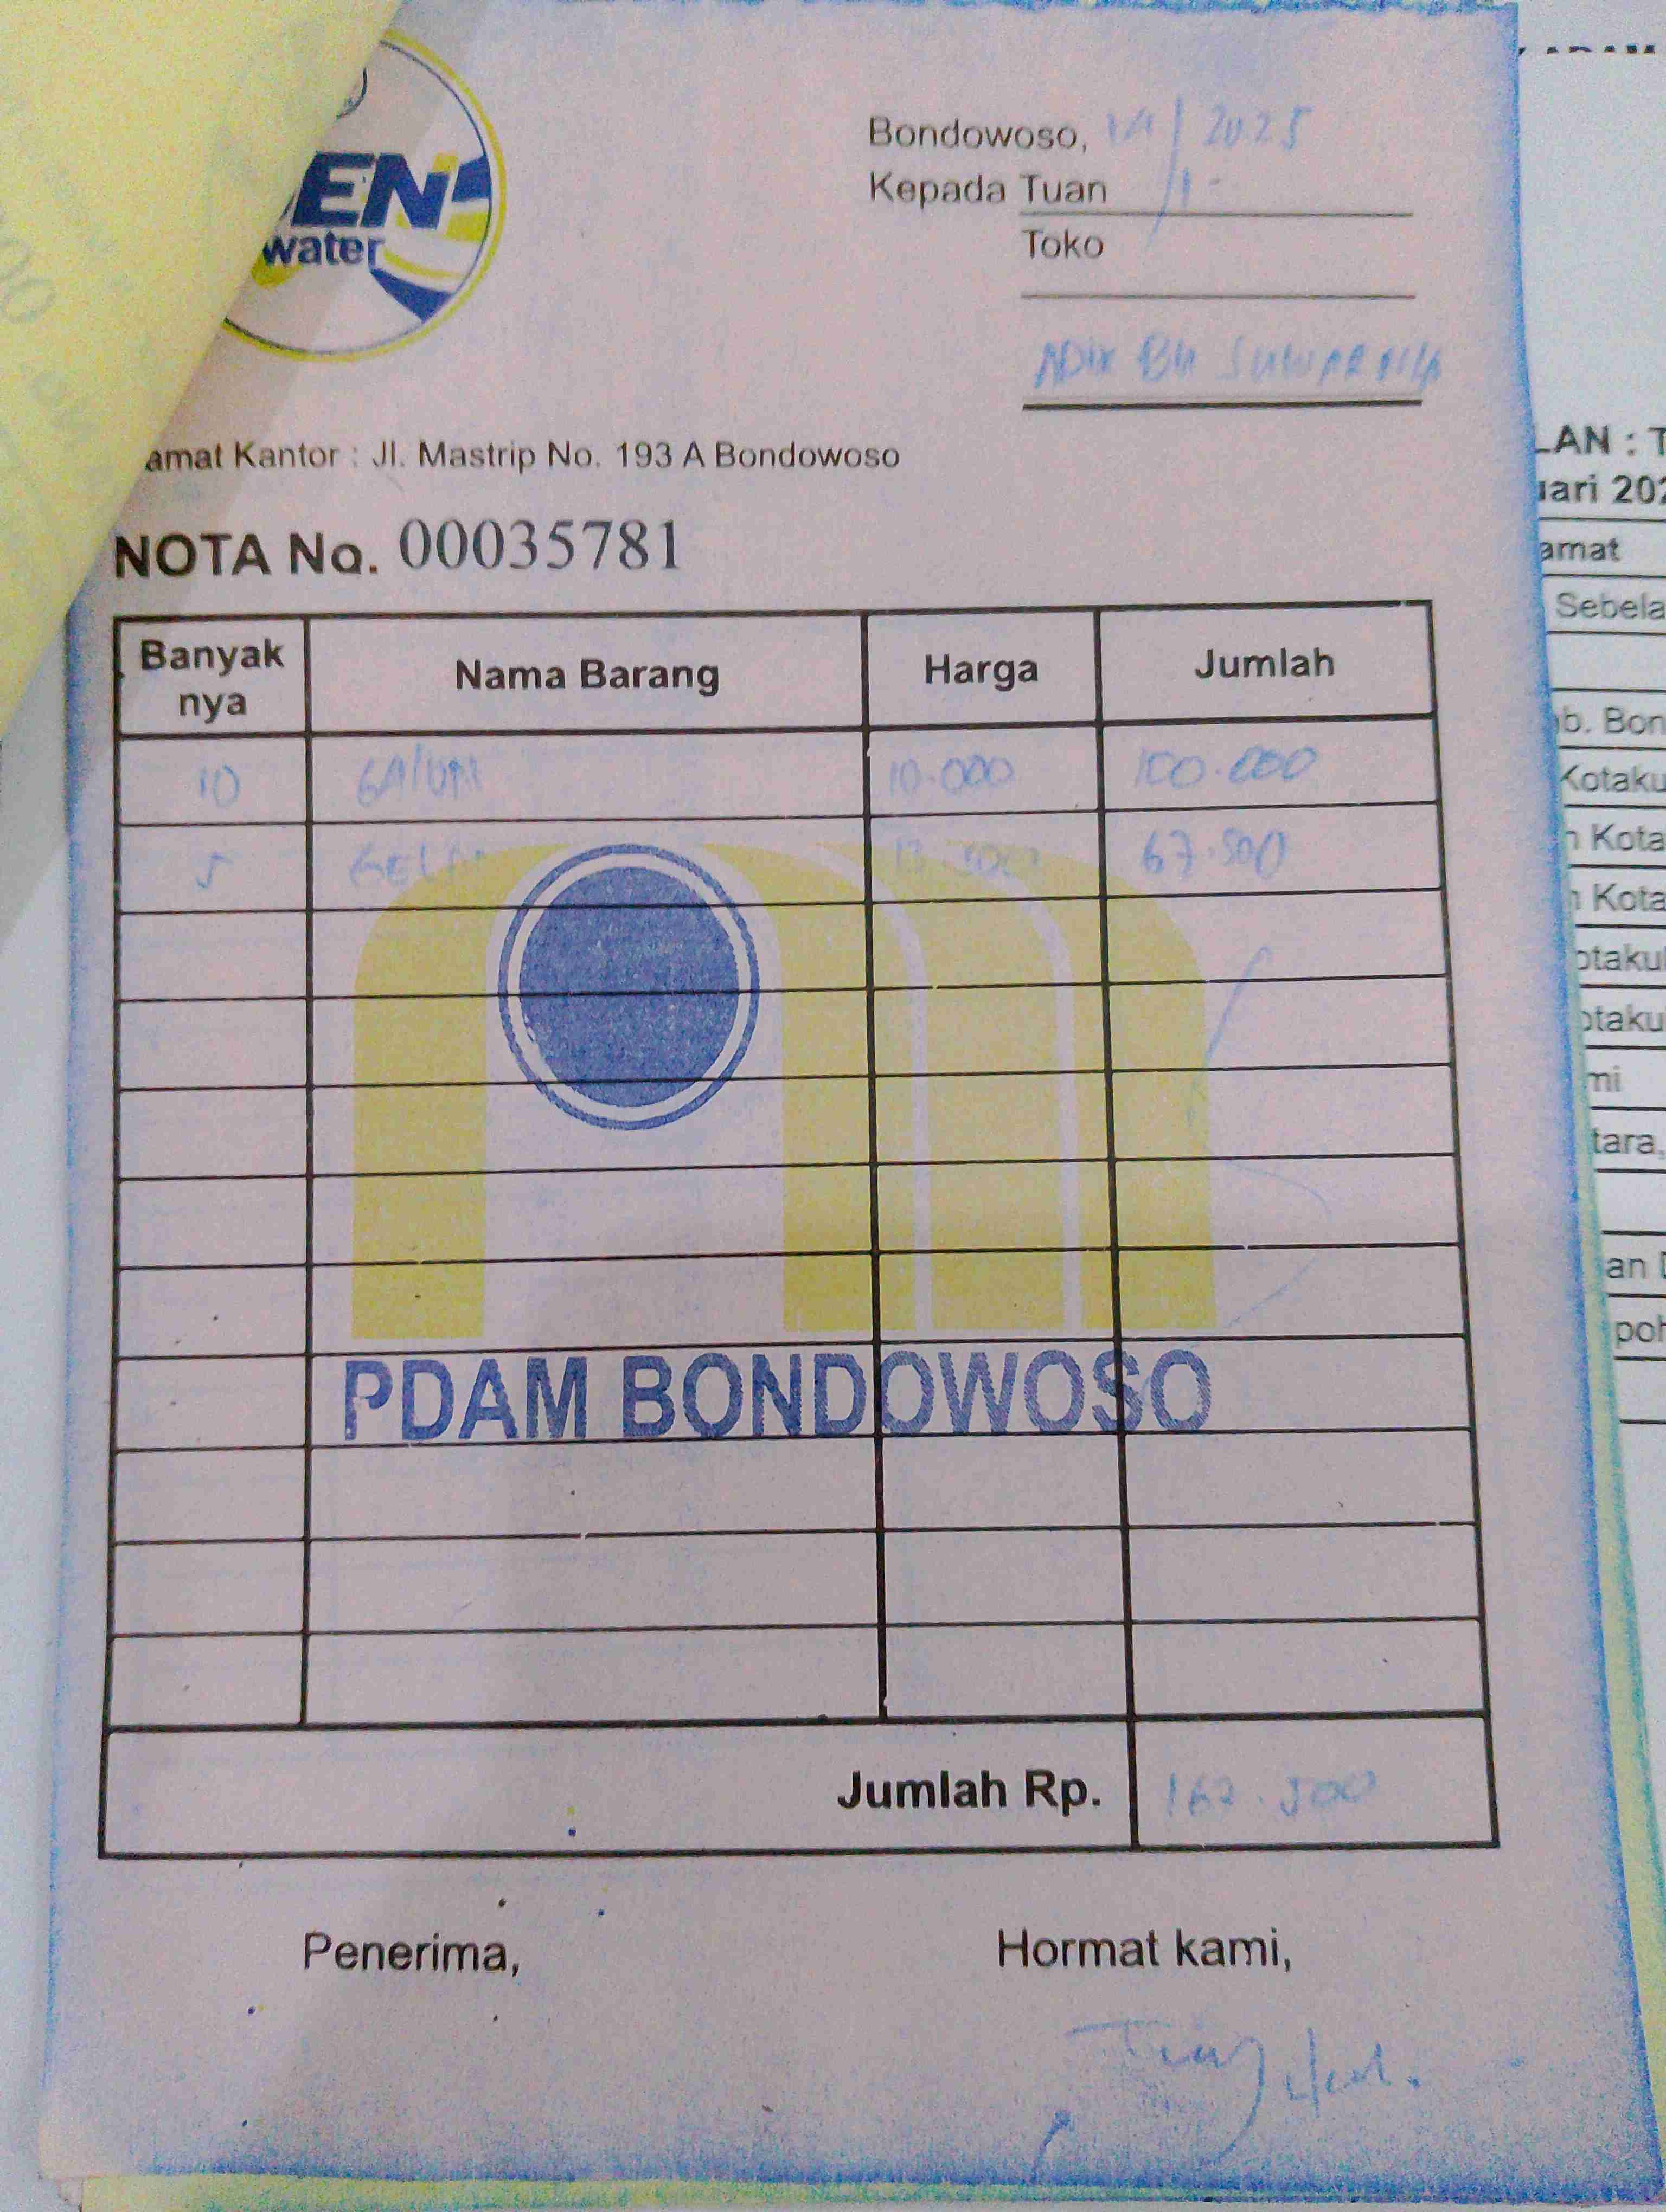 EN
water
Bondowoso, 14/1 - 2025
Kepada Tuan
Toko
ADIK BU
amat Kantor : Jl. Mastrip No. 193 A Bondowoso
NOTA No. 00035781
Banyak nya Nama Barang Harga Jumlah
10 GALON 10.000 100.000
5 GELAS 13.500 67.500
PDAM BONDOWOSO
Jumlah Rp. 167.500
Penerima, Hormat kami,
LAN : T
uari 202
amat
Sebela
b. Bon
Kotaku
n Kota
n Kota
otakul
otaku
mi
tara,
an D
poh